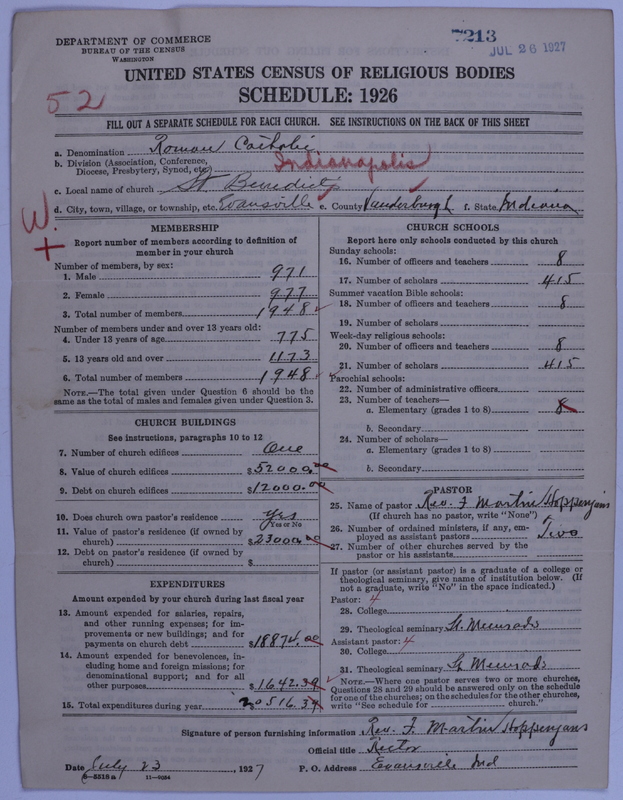 DEPARTMENT OF COMMERCE
BUREAU OF THE CENSUS
WASHINGTON
7213
JUL 26 1927
UNITED STATES CENSUS OF RELIGIOUS BODIES
SCHEDULE: 1926
52
FILL OUT A SEPARATE SCHEDULE FOR EACH CHURCH. SEE INSTRUCTIONS ON THE BACK OF THIS SHEET
a. Denomination Roman Catholic
b. Division (Association, Conference, Diocese, Presbytery, Synod, etc.) Indianapolis
c. Local name of church St. Benedict's
d. City, town, village, or township, etc. Evansville e. County Vanderburgh f. State Indiana
W.
+
MEMBERSHIP
Report number of members according to definition of
member in your church
Number of members, by sex:
1. Male 971
2. Female 977
3. Total number of members 1948
Number of members under and over 13 years old:
4. Under 13 years of age 775
5. 13 years old and over 1173
6. Total number of members 1948
NOTE.—The total given under Question 6 should be the
same as the total of males and females given under Question 3.
CHURCH BUILDINGS
See instructions, paragraphs 10 to 12
7. Number of church edifices One
8. Value of church edifices $52000.00
9. Debt on church edifices $12000.00
10. Does church own pastor's residence Yes
Yes or No
11. Value of pastor's residence (if owned by
church) $23000.00
12. Debt on pastor's residence (if owned by
church) $
EXPENDITURES
Amount expended by your church during last fiscal year
13. Amount expended for salaries, repairs,
and other running expenses; for im-
provements or new buildings; and for
payments on church debt $18874.00
14. Amount expended for benevolences, in-
cluding home and foreign missions; for
denominational support; and for all
other purposes $1642.39
15. Total expenditures during year 20516.39
CHURCH SCHOOLS
Report here only schools conducted by this church
Sunday schools:
16. Number of officers and teachers 8
17. Number of scholars 415
Summer vacation Bible schools:
18. Number of officers and teachers 8
19. Number of scholars
Week-day religious schools:
20. Number of officers and teachers 8
21. Number of scholars 415
Parochial schools:
22. Number of administrative officers
23. Number of teachers—
a. Elementary (grades 1 to 8) 8
b. Secondary
24. Number of scholars—
a. Elementary (grades 1 to 8)
b. Secondary
PASTOR
25. Name of pastor Rev. F. Martin Hoppenjans
(If church has no pastor, write "None")
26. Number of ordained ministers, if any, em-
ployed as assistant pastors Two
27. Number of other churches served by the
pastor or his assistants
If pastor (or assistant pastor) is a graduate of a college or
theological seminary, give name of institution below. (If
not a graduate, write "No" in the space indicated.)
Pastor: 4
28. College
29. Theological seminary St. Meinrads
Assistant pastor: 4
30. College
31. Theological seminary St. Meinrads
NOTE.—Where one pastor serves two or more churches,
Questions 28 and 29 should be answered only on the schedule
for one of the churches; on the schedules for the other churches,
write "See schedule for church."
Signature of person furnishing information Rev. F. Martin Hoppenjans
Official title Rector
Date July 23, 1927 P. O. Address Evansville Ind
8—5518a 11—9054